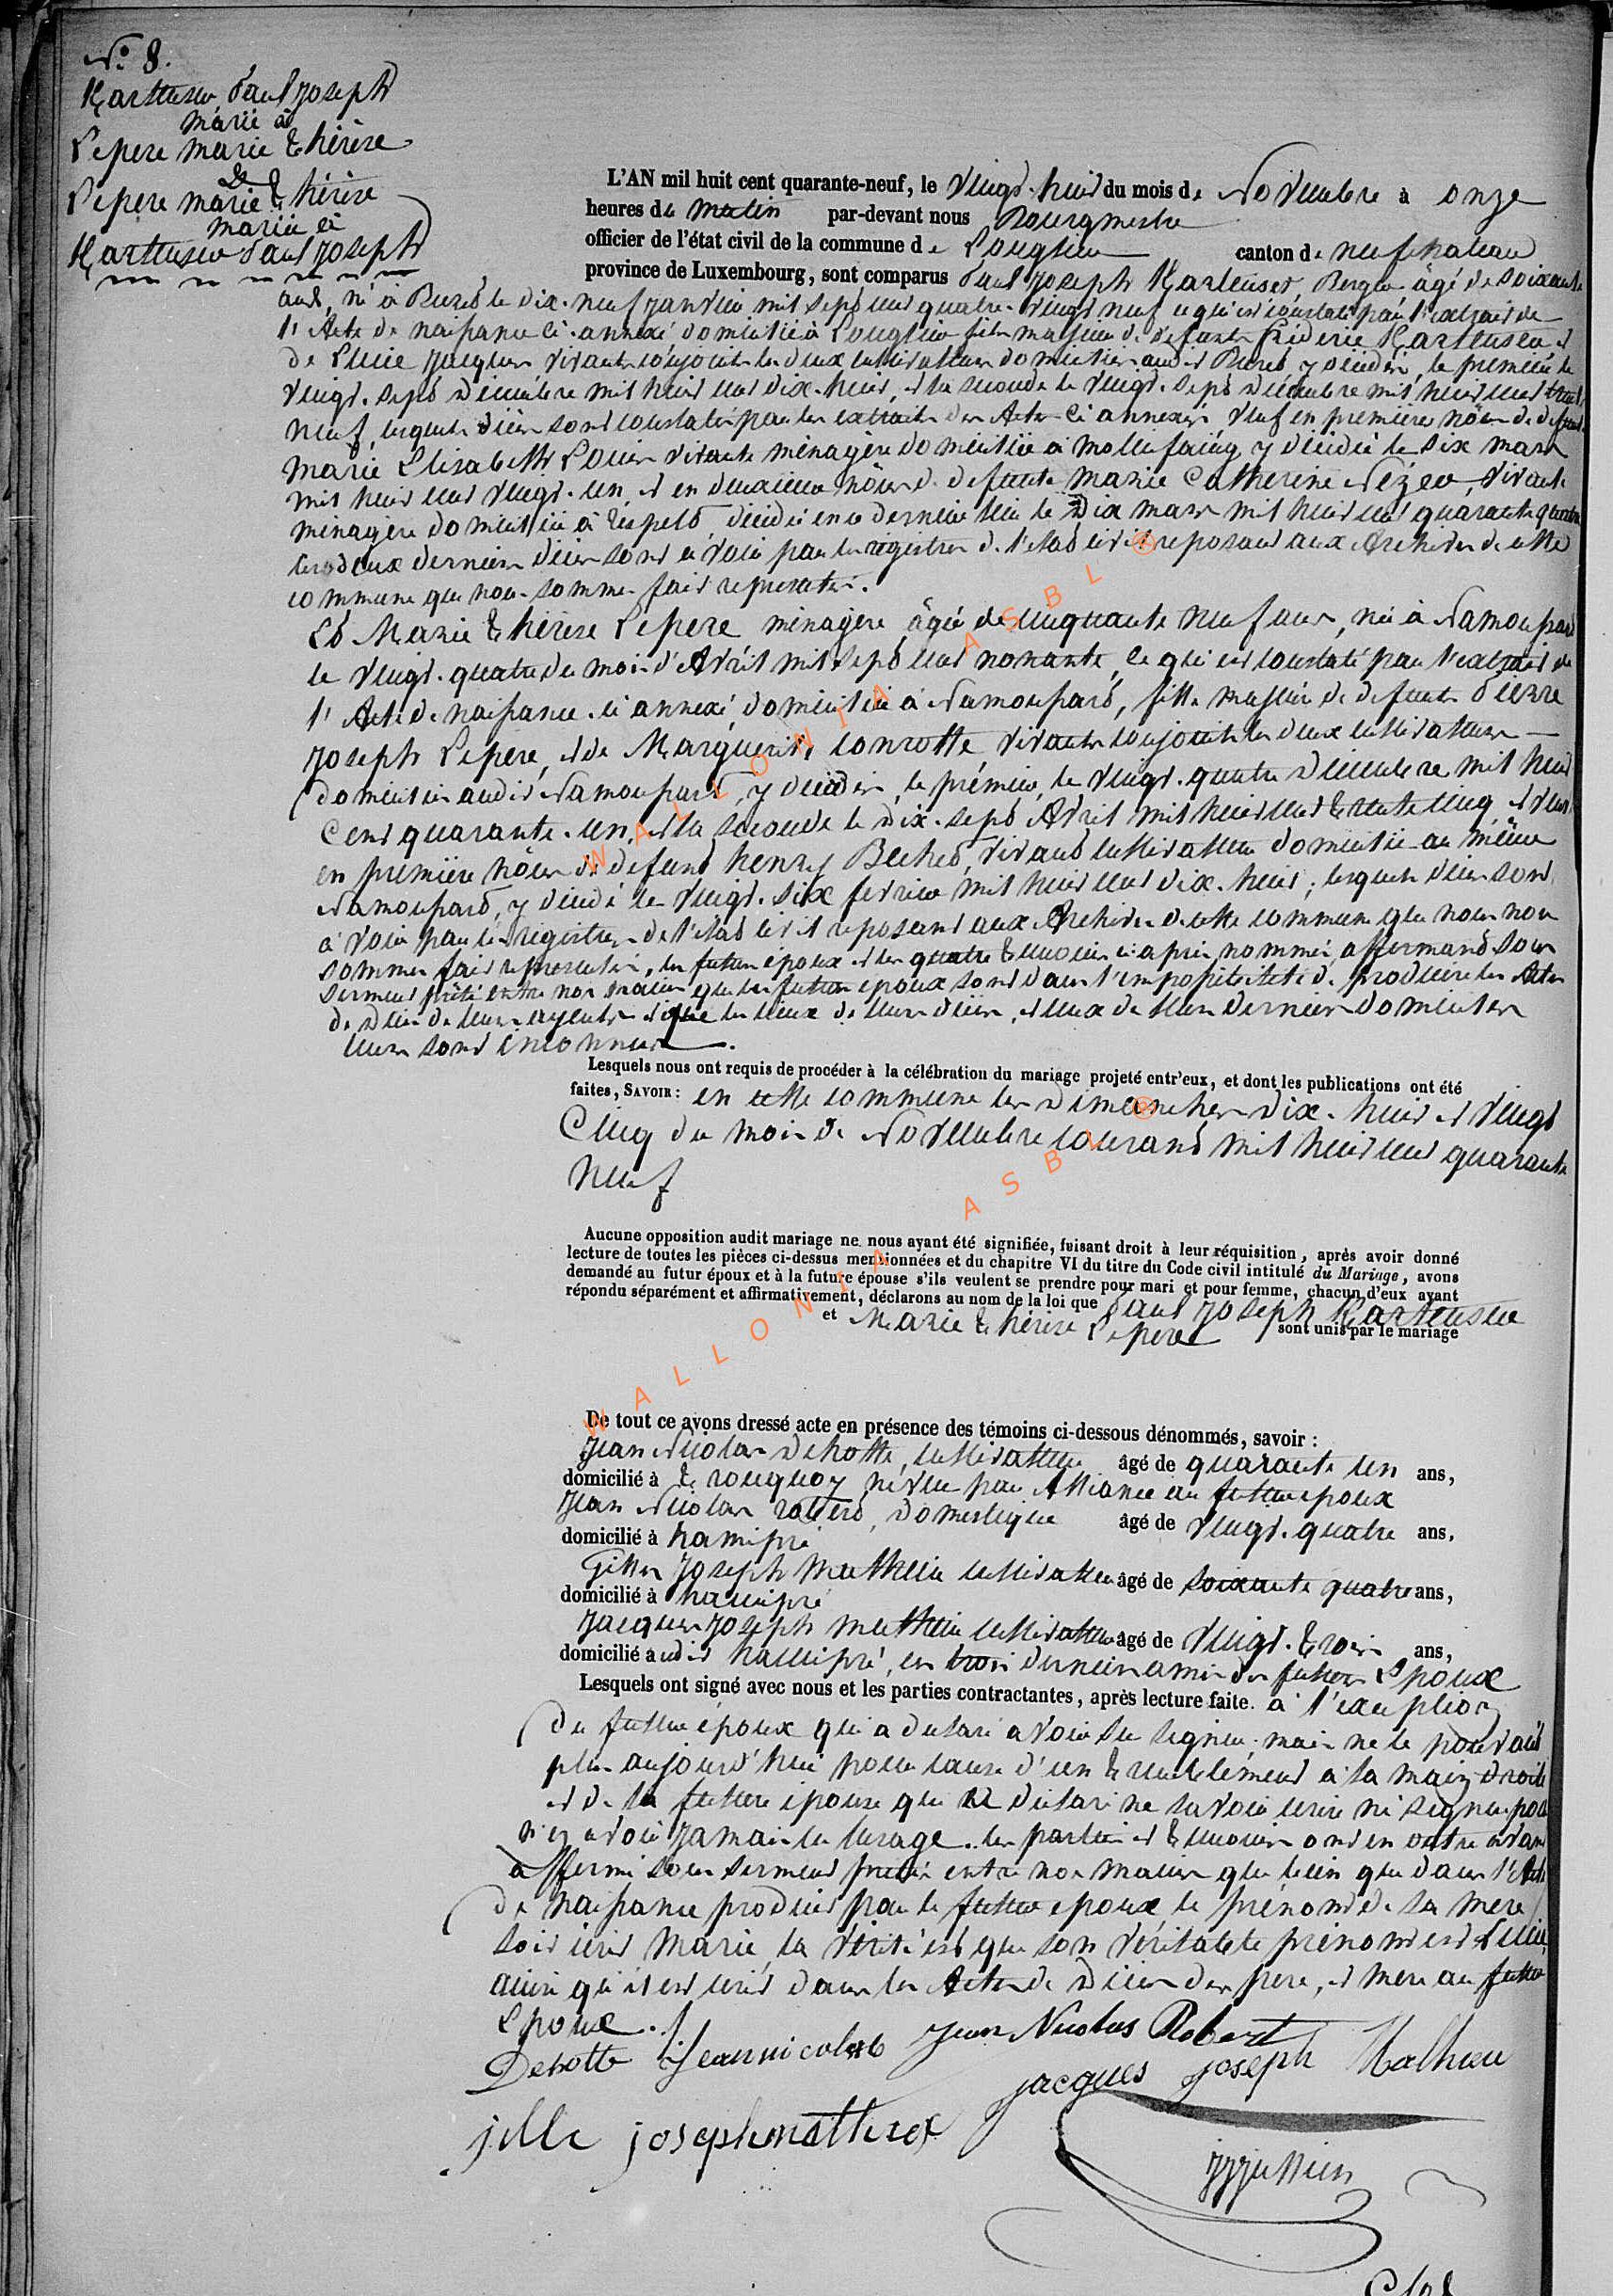 N.° 8.
Kartheuser Paul Joseph
marié à
Lepere marie thérèse
&
Lepere marie thérèse
mariée à
Kartheuser Paul Joseph
L'AN mil huit cent quarante-neuf, le vingt-huit du mois de Novembre à onze
heures du Matin par-devant nous Bourgmestre
officier de l'état civil de la commune de Longlier canton de neufchateau
province de Luxembourg, sont comparus Paul Joseph Karteuser, Berger âgé de soixante
ans, né à le dix-neuf janvier mil sept cent quatre-vingt neuf ce qui est constaté par l'extrait de
l'Acte de naissance ci-annexé domicilié à Longlier fils majeur de defunts Fréderic Karteuser et
de Lucie vivants conjoints les deux cultivateurs domiciliés audit y décédés, le premier le
vingt-sept Décembre mil huit cent dix-huit, et la seconde le vingt-sept Décembre mil huit cent trente
neuf, lesquels décès sont constatés par les extraits des Actes ci annexés veuf en premières nôces de defunte
marie Elisabeth Louis vivante ménagère domiciliée à mollefaing y décédée le six mars
mil huit cent vingt-un, et en deuxième nôces de defunte Marie Catherine Nézer, vivante
ménagère domiciliée à Respelt, décédée en ce dernier lieu le Dix mars mil huit cent quarante quatre
ces deux derniers décès sont à voir par les registres de l'etat civil reposant aux Archives de cette
commune que nous sommes fait representer.
Et Marie thérèse Lepere ménagère, âgée de cinquante neuf ans, née à Namoupard
le vingt-quatre du mois d'Avril mil sept cent nonante, ce qui est constaté par l'extrait de
l'Acte de naissance ci annexé, domiciliée à Namoupard, fille majeure de defunts Pierre
Joseph Lepere, et de Marguerite conrotte vivants conjoints les deux cultivateurs
domiciliés audit Namoupard, y décédés, le prémier, le vingt-quatre Décembre mil huit
Cent quarante-un, et la seconde le Dix-sept Avril mil huit cent trente cinq, et veuve
en première nôces de defunt henry Bechet, vivant cultivateur domicilié au même
Namoupard, y décédé le vingt-six fevrier mil huit cent dix-huit; lesquels décès sont
à voir par les registres de l'etat civil reposant aux Archives de cette commune que nous nous
sommes fait représenter, les futurs époux et les quatre témoins ci-après nommés, affermant sous
serment prêté entre nos mains que les futurs époux sont dans l'impossibilité de produire les Actes
de Décès de leurs ayeuls et que les lieux de leurs décès, et ceux de leurs derniers domiciles
leurs sont inconnus.
Lesquels nous ont requis de procéder à la célébration du mariage projeté entr'eux, et dont les publications ont été
faites, SAVOIR: en cette commune les Dimanches Dix-huit et vingt
Cinq du mois de Novembre courant mil huit cent quarante
neuf
Aucune opposition audit mariage ne nous ayant été signifiée, faisant droit à leur réquisition, après avoir donné
lecture de toutes les pièces ci-dessus mentionnées et du chapitre VI du titre du Code civil intitulé du Mariage, avons
demandé au futur époux et à la future épouse s'ils veulent se prendre pour mari et pour femme, chacun d'eux ayant
répondu séparément et affirmativement, déclarons au nom de la loi que Paul Joseph Karteuser
et Marie thérèse Lepere sont unis par le mariage
De tout ce avons dressé acte en présence des témoins ci-dessous dénommés, savoir :
Jean Nicolas Dehotte, cultivateur âgé de quarante un ans,
domicilié à tronquoy néveu par Alliance au futur epoux
Jean Nicolas Robert, Domestique âgé de vingt-quatre ans,
domicilié à hamipré
Gilles Joseph Mathieu cultivateur âgé de soixante quatre ans,
domicilié à hamipré
Jacques Joseph Mathieu cultivateur âgé de vingt-trois ans,
domicilié audit hamipré, les trois derniers amis des futurs Epoux
Lesquels ont signé avec nous et les parties contractantes, après lecture faite. à l'exception
du futur époux qui a déclaré avoir su signer, mais ne le pouvait
plus aujourd'hui pour cause d'un tremblement à la main droite
et de la future épouse qui a déclaré ne savoir écrire ni signer pour
n'en avoir jamais eu l'usage. les parties et témoins ont en outre
affermi sous serment prêté entre nos mains que bien que dans l'Acte
de naissance produit par le futur epoux, le prénom de sa mere
soit écrit Marie, la vérité est que son véritable prénom est Lucie,
ainsi qu'il est écrit dans les Actes de Décès des pere, et mere au futur
Epoux.
Dehotte Jean nicolas Jean Nicolas Robert
jacques joseph Mathieu
jille joseph mathieux
WALLONIA ASBL ®
WALLONIA ASBL ®